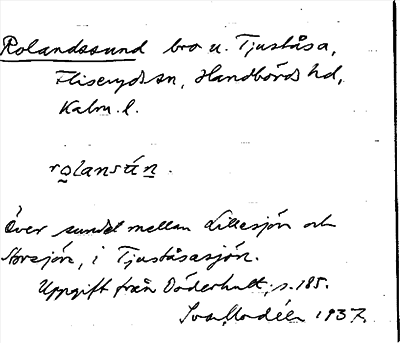 Rolandssund bro u. Tjuståsa,
Fliseryds sn, Handbörds hd,
Kalm. l.
rolansún.
Över sundet mellan Lillesjön och
Storsjön, i Tjuståsasjön.
Uppgift från Döderhult, s. 185.
Modéer 1937.